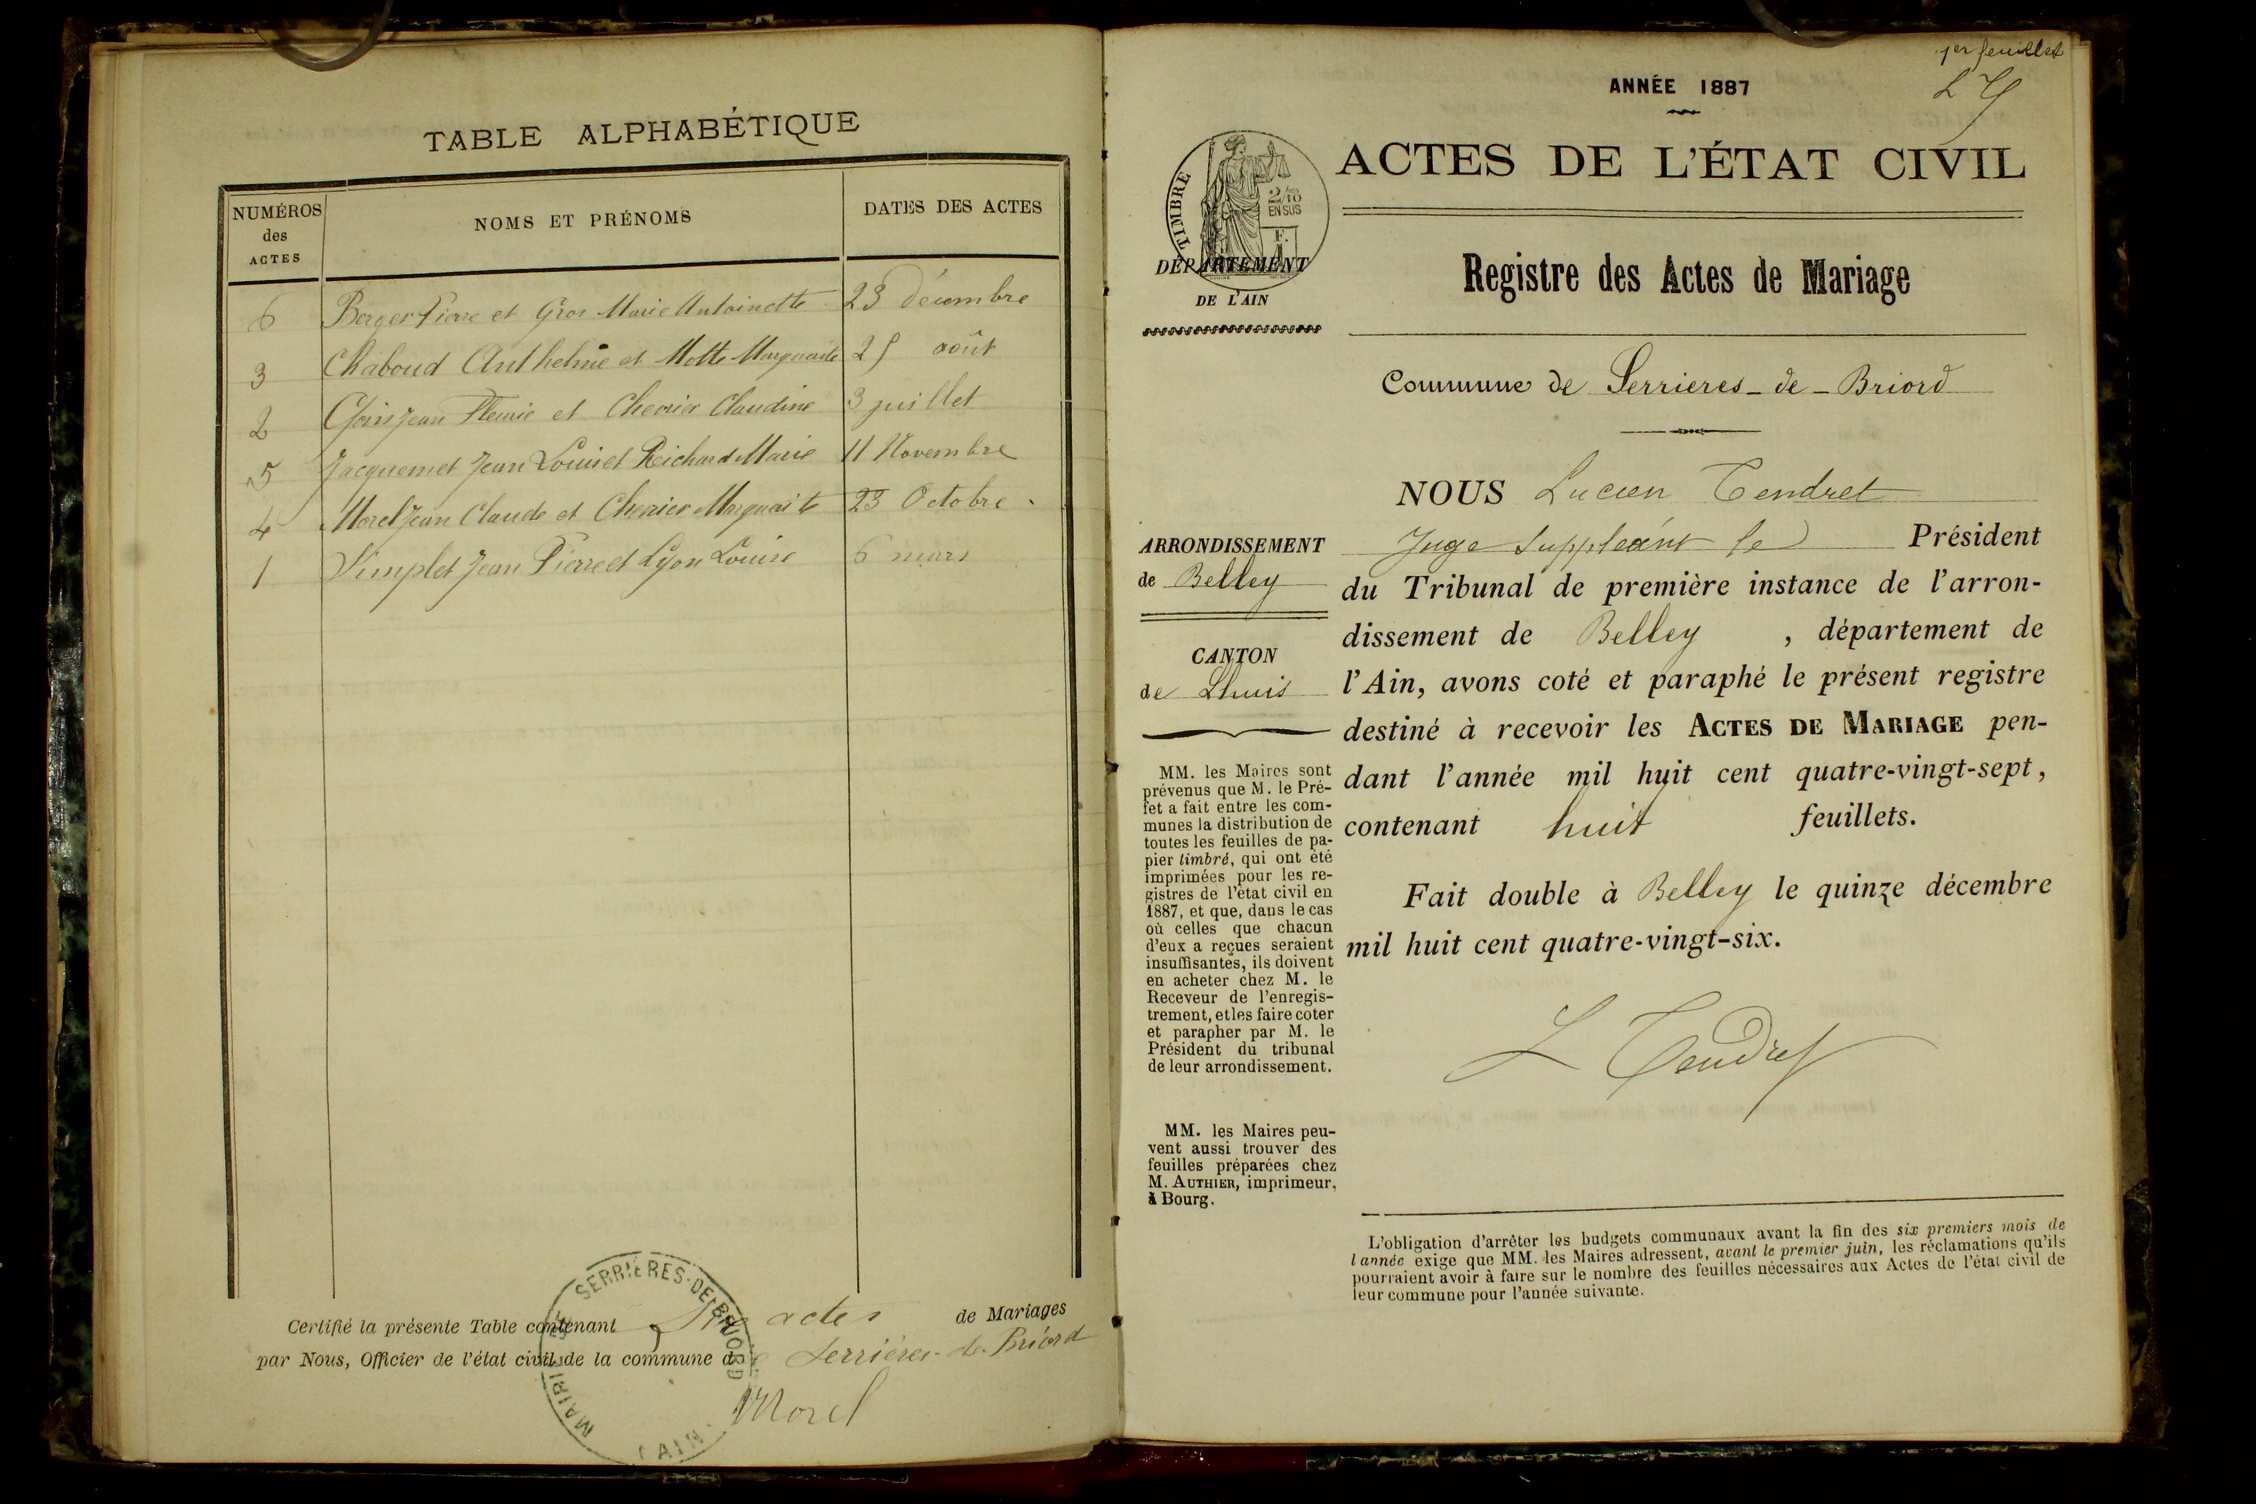 TABLE ALPHABÉTIQUE
NUMÉROS des ACTES
NOMS ET PRÉNOMS
DATES DES ACTES
6 Berger Pierre et Gros Marie Antoinette 23 décembre
3 Chaboud Anthelme et Motte Marguerite 25 août
2 Jean Fleurie et Chenier Claudine 3 juillet
5 Jacquemet Jean Louis et Reichard Marie 11 Novembre
4 Morel Jean Claude et Chenier Marguerite 23 Octobre
1 Simplet Jean Pierre et Lyon Louise 6 mars
Certifié la présente Table contenant Six actes de Mariages
par Nous, Officier de l'état civil de la commune de Serrières-de-Briord
Morel
MAIRIE DE SERRIÈRES-DE-BRIORD
(AIN)
1er feuillet
LT
ANNÉE 1887
ACTES DE L'ÉTAT CIVIL
TIMBRE
2/10
EN SUS
DÉPARTEMENT
DE L'AIN
Registre des Actes de Mariage
Commune de Serrieres-de-Briord
ARRONDISSEMENT
de Belley
CANTON
de Lhuis
MM. les Maires sont
prévenus que M. le Pré-
fet a fait entre les com-
munes la distribution de
toutes les feuilles de pa-
pier timbré, qui ont été
imprimées pour les re-
gistres de l'état civil en
1887, et que, dans le cas
où celles que chacun
d'eux a reçues seraient
insuffisantes, ils doivent
en acheter chez M. le
Receveur de l'enregis-
trement, et les faire coter
et parapher par M. le
Président du tribunal
de leur arrondissement.
MM. les Maires peu-
vent aussi trouver des
feuilles préparées chez
M. AUTHIER, imprimeur,
à Bourg.
NOUS Lucien Tendret
Juge Suppléant le Président
du Tribunal de première instance de l'arron-
dissement de Belley, département de
l'Ain, avons coté et paraphé le présent registre
destiné à recevoir les ACTES DE MARIAGE pen-
dant l'année mil huit cent quatre-vingt-sept,
contenant huit feuillets.
Fait double à Belley le quinze décembre
mil huit cent quatre-vingt-six.
L Tendret
L'obligation d'arrêter les budgets communaux avant la fin des six premiers mois de
l'année exige que MM. les Maires adressent, avant le premier juin, les réclamations qu'ils
pourraient avoir à faire sur le nombre des feuilles nécessaires aux Actes de l'état civil de
leur commune pour l'année suivante.